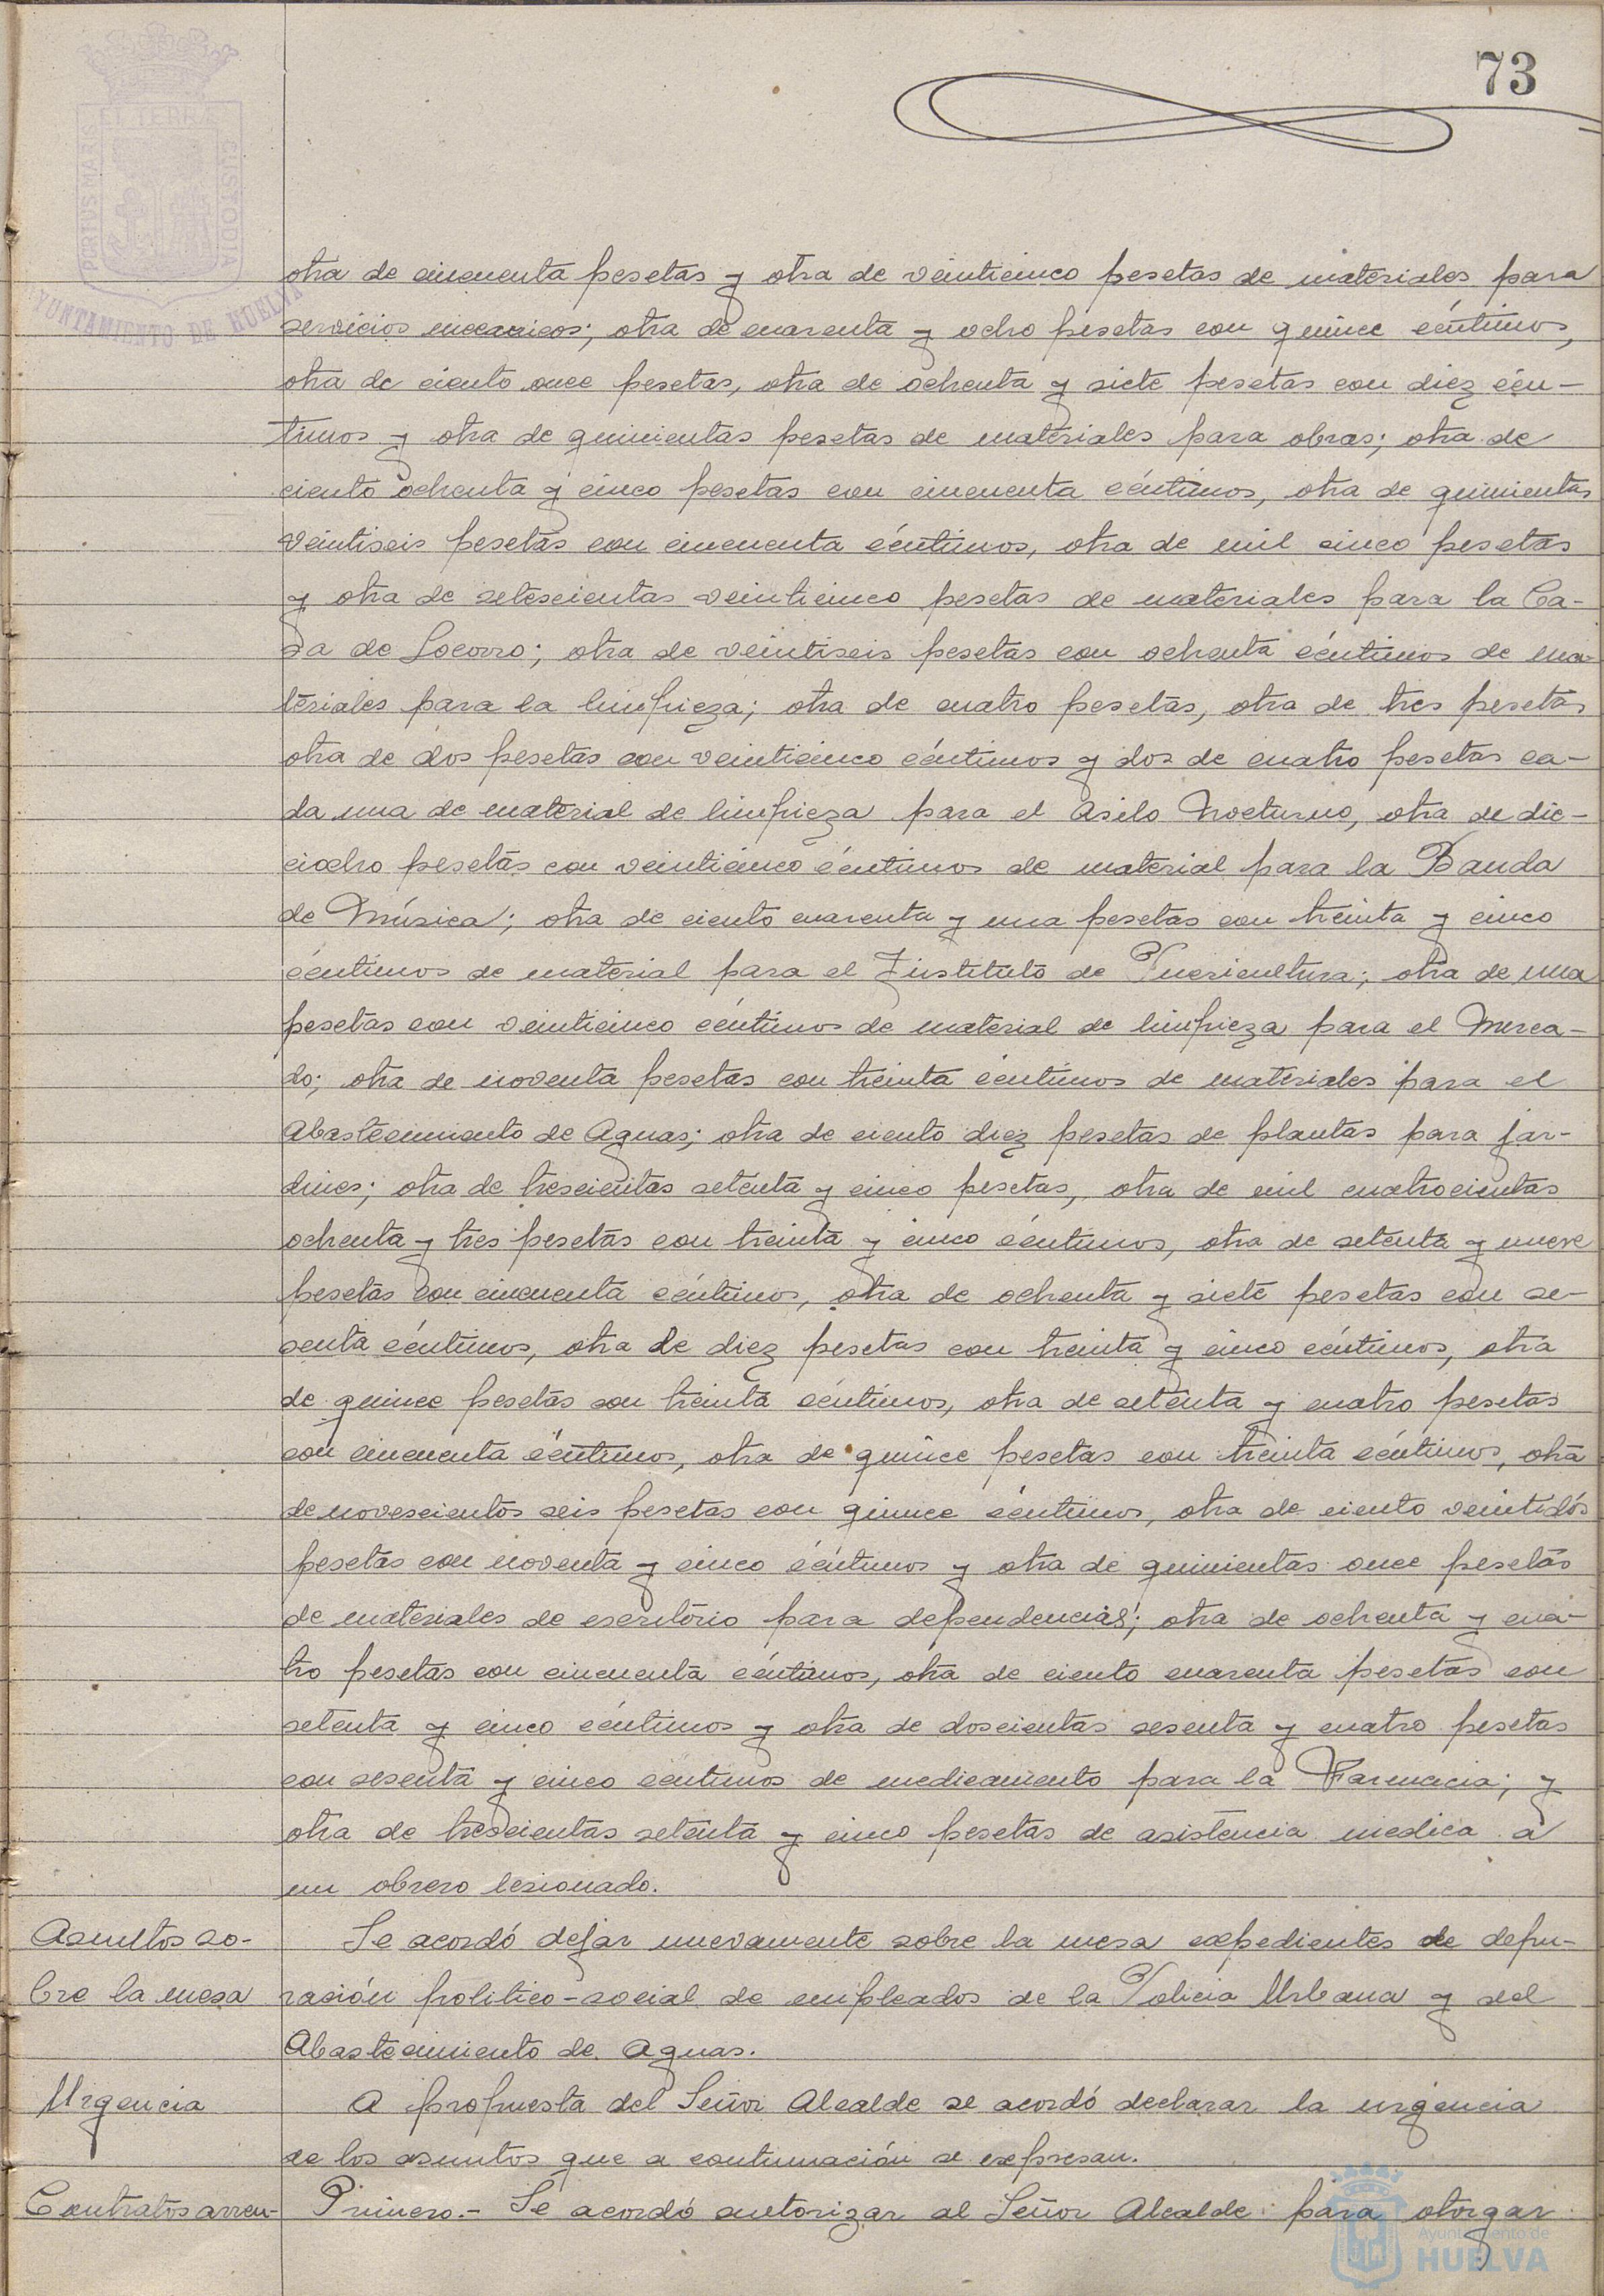 73
PORTUS MARIS ET TERRÆ CUSTODIA
AYUNTAMIENTO DE HUELVA
otra de cincuenta pesetas y otra de veinticinco pesetas de materiales para
servicios mecanicos; otra de cuarenta y ocho pesetas con quince céntimos,
otra de ciento once pesetas, otra de ochenta y siete pesetas con diez cén-
timos y otra de quinientas pesetas de materiales para obras; otra de
ciento ochenta y cinco pesetas con cincuenta céntimos, otra de quinientas
veintiseis pesetas con cincuenta céntimos, otra de mil cinco pesetas
y otra de setescientas veinticinco pesetas de materiales para la Ca-
sa de Socorro; otra de veintiseis pesetas con ochenta céntimos de ma-
teriales para la limpieza; otra de cuatro pesetas, otra de tres pesetas
otra de dos pesetas con veinticinco céntimos y dos de cuatro pesetas ca-
da una de material de limpieza para el Asilo Nocturno, otra de die-
ciocho pesetas con veinticinco céntimos de material para la Banda
de Música; otra de ciento cuarenta y una pesetas con treinta y cinco
céntimos de material para el Instituto de Puericultura; otra de una
pesetas con veinticinco céntimos de material de limpieza para el Merca-
do; otra de noventa pesetas con treinta céntimos de materiales para el
Abastecimiento de Aguas; otra de ciento diez pesetas de plantas para jar-
dines; otra de trescientas setenta y cinco pesetas, otra de mil cuatrocientas
ochenta y tres pesetas con treinta y cinco céntimos, otra de setenta y nueve
pesetas con cincuenta céntimos, otra de ochenta y siete pesetas con se-
senta céntimos, otra de diez pesetas con treinta y cinco céntimos, otra
de quince pesetas con treinta céntimos, otra de setenta y cuatro pesetas
con cincuenta céntimos, otra de quince pesetas con treinta céntimos, otra
de novescientos seis pesetas con quince céntimos, otra de ciento veintidós
pesetas con noventa y cinco céntimos y otra de quinientas once pesetas
de materiales de escritorio para dependencias; otra de ochenta y cua-
tro pesetas con cincuenta céntimos, otra de ciento cuarenta pesetas con
setenta y cinco céntimos y otra de doscientas sesenta y cuatro pesetas
con sesenta y cinco céntimos de medicamento para la Farmacia; y
otra de trescientas setenta y cinco pesetas de asistencia medica a
un obrero lesionado.
Asuntos so-
bre la mesa
Se acordó dejar nuevamente sobre la mesa expedientes de depu-
ración politico-social de empleados de la Policia Urbana y del
Abastecimiento de Aguas.
Urgencia
A propuesta del Señor Alcalde se acordó declarar la urgencia
de los asuntos que a continuación se expresan.
Contratos arren-
Primero.- Se acordó autorizar al Señor Alcalde para otorgar
Ayuntamiento de
HUELVA